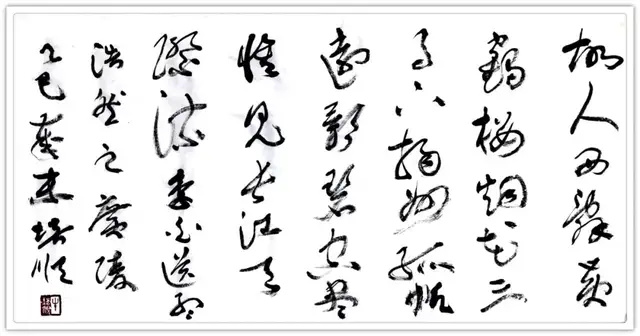 故人西辞黄
鹤楼烟花三
月下扬州孤帆
远影碧空尽
惟见长江天
际流李白送孟
浩然之广陵
乙巳 培顺